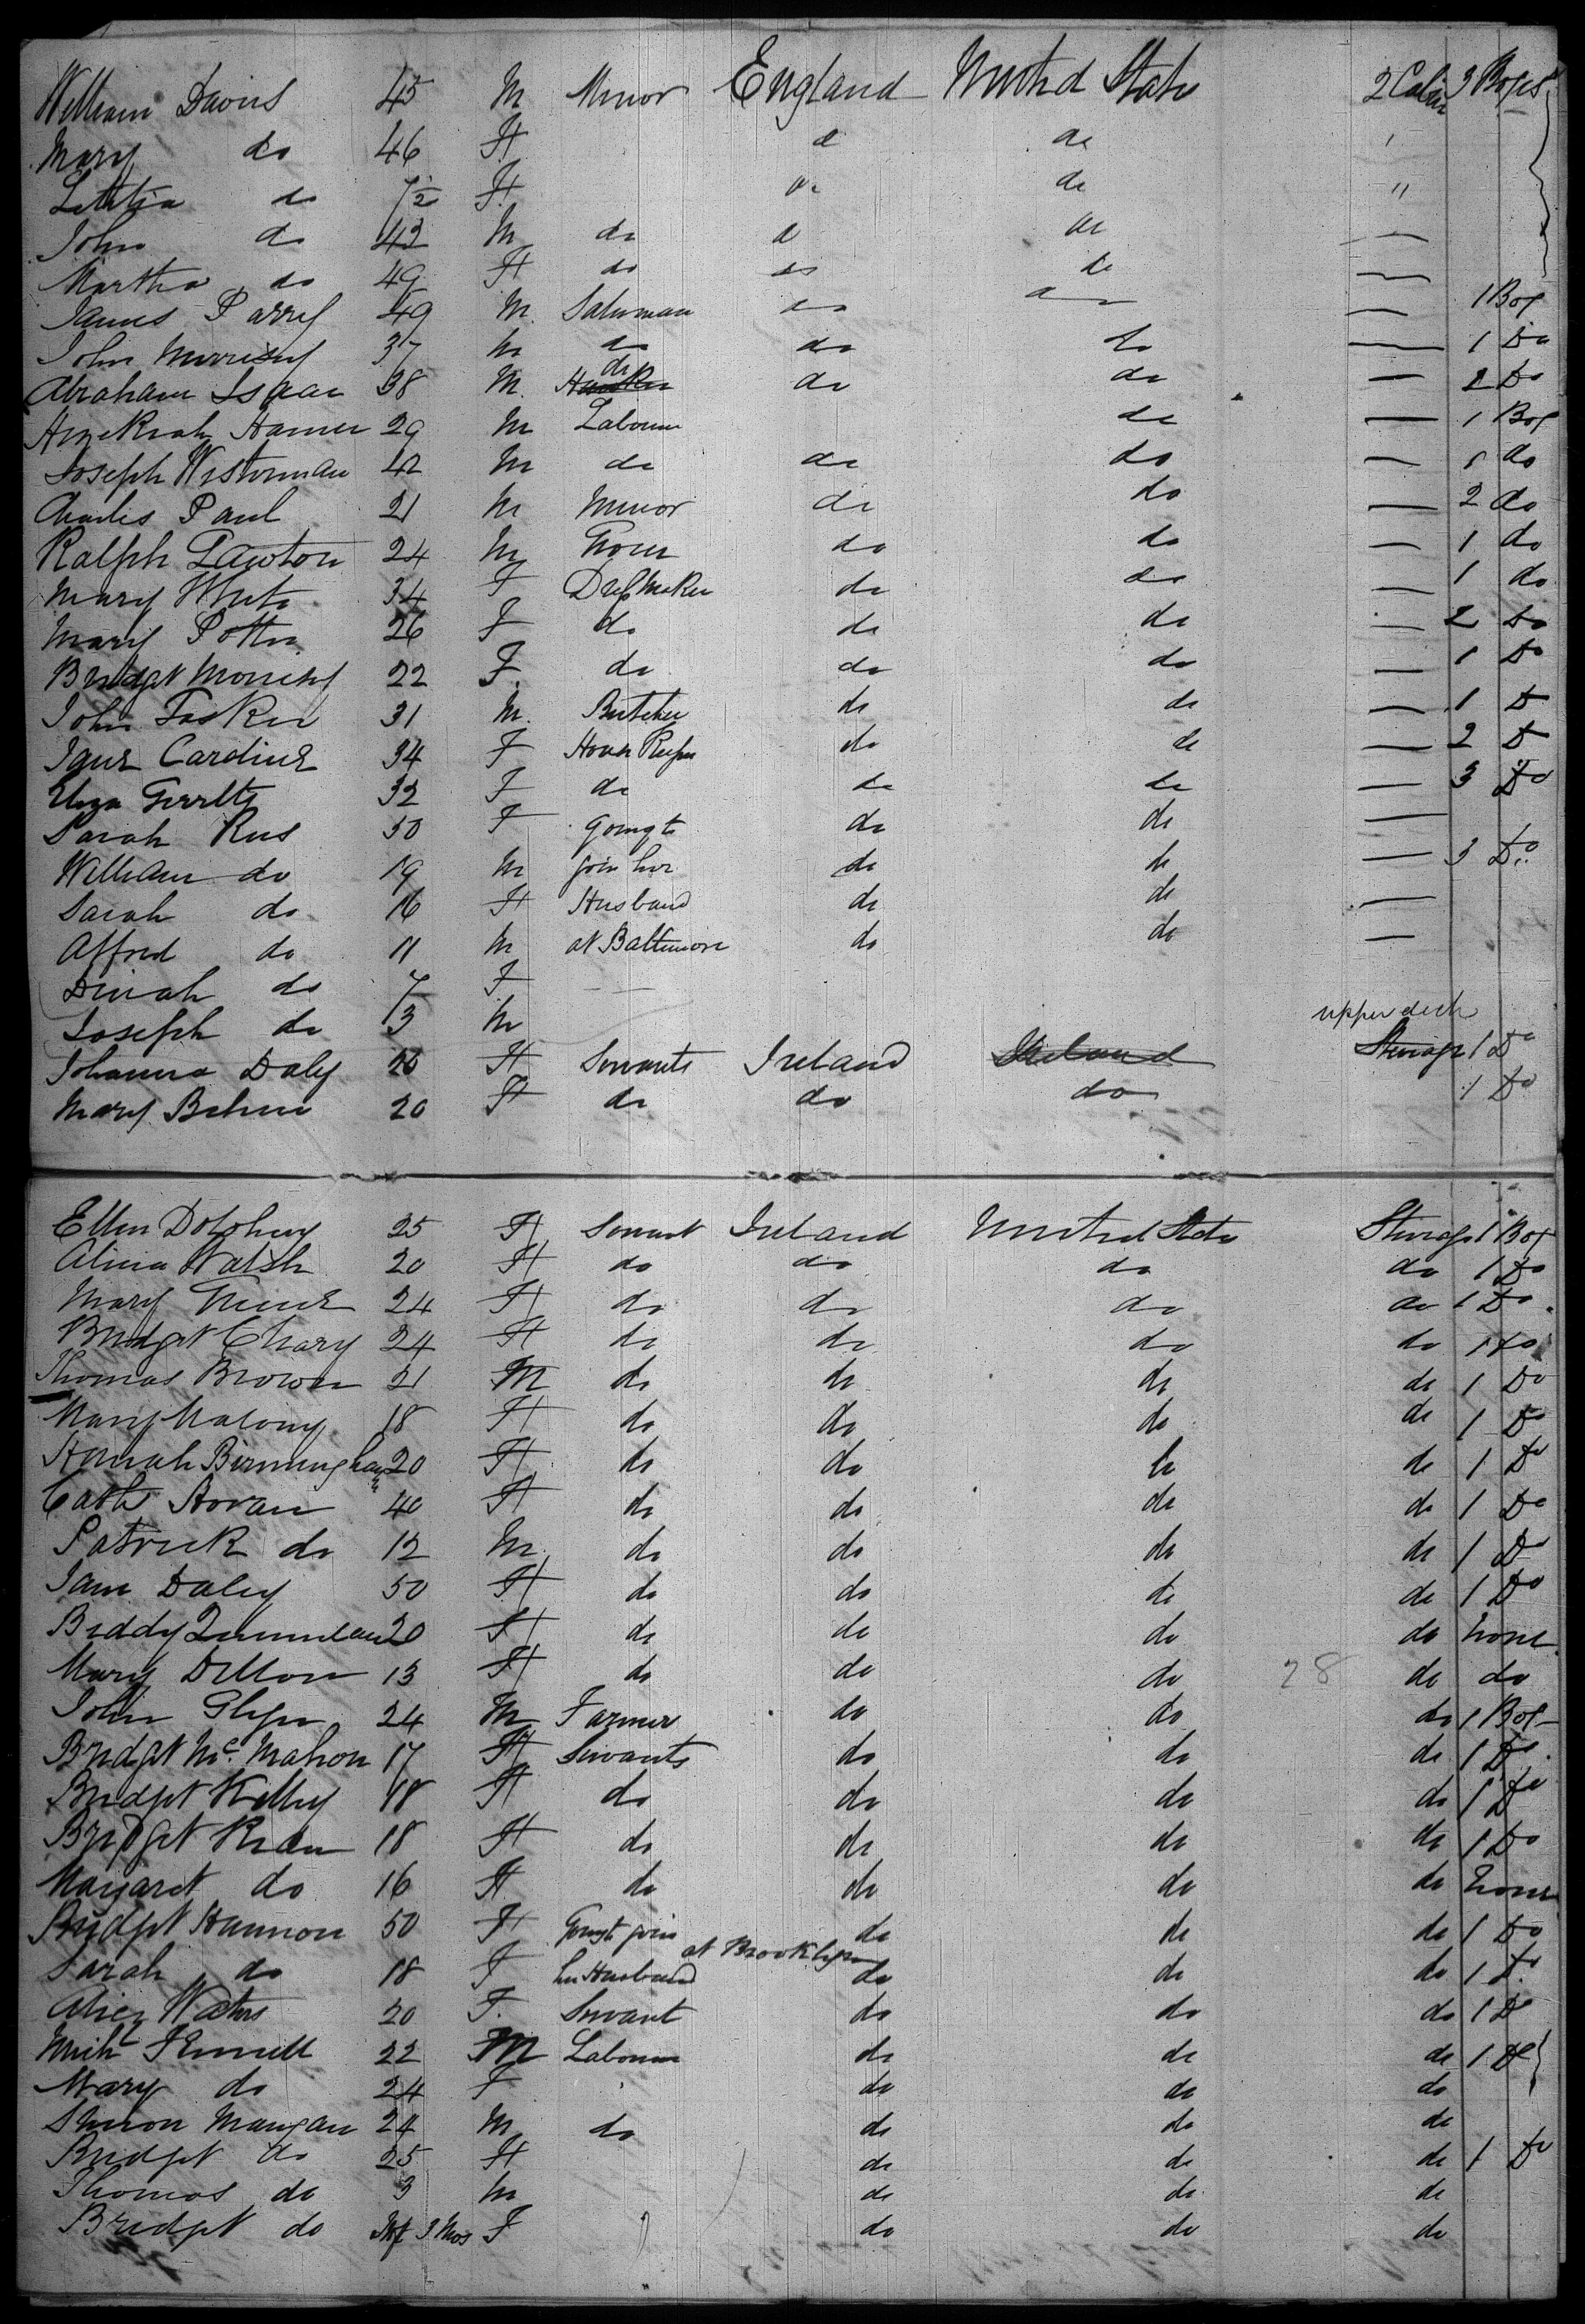 William Davis 45 M Minor England United State 2 Cabin 3 Boxes
Mary do 46 F d do "
Letitia do 7½ F do do "
John do 43 M do d do —
Martha do 49 F do do do —
James Parry 49 M Salesman do do — 1 Box
John Morrissy 37 M do do do — 1 Do
Abraham Isaac 38 M do do do — 2 Do
Hezekiah Hamer 29 M Labourer do — 1 Box
Joseph Westerman 42 M do do do — 1 do
Charles Paul 21 M Minor do do — 2 do
Ralph Lawton 24 M Grocer do do — 1 do
Mary White 34 F Dress Maker do do — 1 do
Mary Potter 26 F do do do — 2 Do
Bridget Morrissy 22 F do do do — 1 Do
John Tasker 31 M Butcher do do — 1 D
Jane Cardine 34 F House Keeper do do — 2 D
Eliza 32 F do do do — 3 Do
Sarah Rees 50 F Going to do do —
William do 19 M join her do do — 3 Do
Sarah do 16 F Husband do do —
Alfred do 11 M at Baltimore do do —
Dinah do 7 F
Joseph do 3 M
upper deck
Johanna Daly 20 F Servants Ireland Ireland Steerage 1 Do
Mary Behan 20 F do do do 1 Do
Ellen Dolohuy 25 F Servant Ireland United State Steerage 1 Box
Alicia Walsh 20 F do do do do 1 Do
Mary Greene 24 F do do do do 1 Do
Bridget Cleary 24 F do do do do 1 do
Thomas Brown 21 M do do do do 1 Do
Mary Malony 18 F do do do do 1 Do
Hannah Birmingham 20 F do do do do 1 Do
Cath Horan 40 F do do do do 1 Do
Patrick do 12 M do do do do 1 Do
Jane Daley 50 F do do do do 1 Do
Biddy Quinnlan 20 F do do do do none
Mary Dillon 13 F do do do 28 do do
John Glynn 24 M Farmer do do do 1 Box
Bridget Mc. Mahon 17 F Servants do do do 1 Do
Bridget Kelley 18 F do do do do 1 Do
Bridget Ryan 18 F do do do do 1 Do
Margaret do 16 F do do do do none
Bridget Hannon 50 F Going to join do do do 1 Do
at Brooklyn
Sarah do 18 F her Husband do do do 1 Do
Alice Waters 20 F Servant do do do 1 D
Michl Fennell 22 M Labourer do do do 1 Do
Mary do 24 F do do do
Simon Mangan 24 M do do do do
Bridget do 25 F do do do 1 Do
Thomas do 3 M do do do
Bridget do Inf 3 Mos F do do do